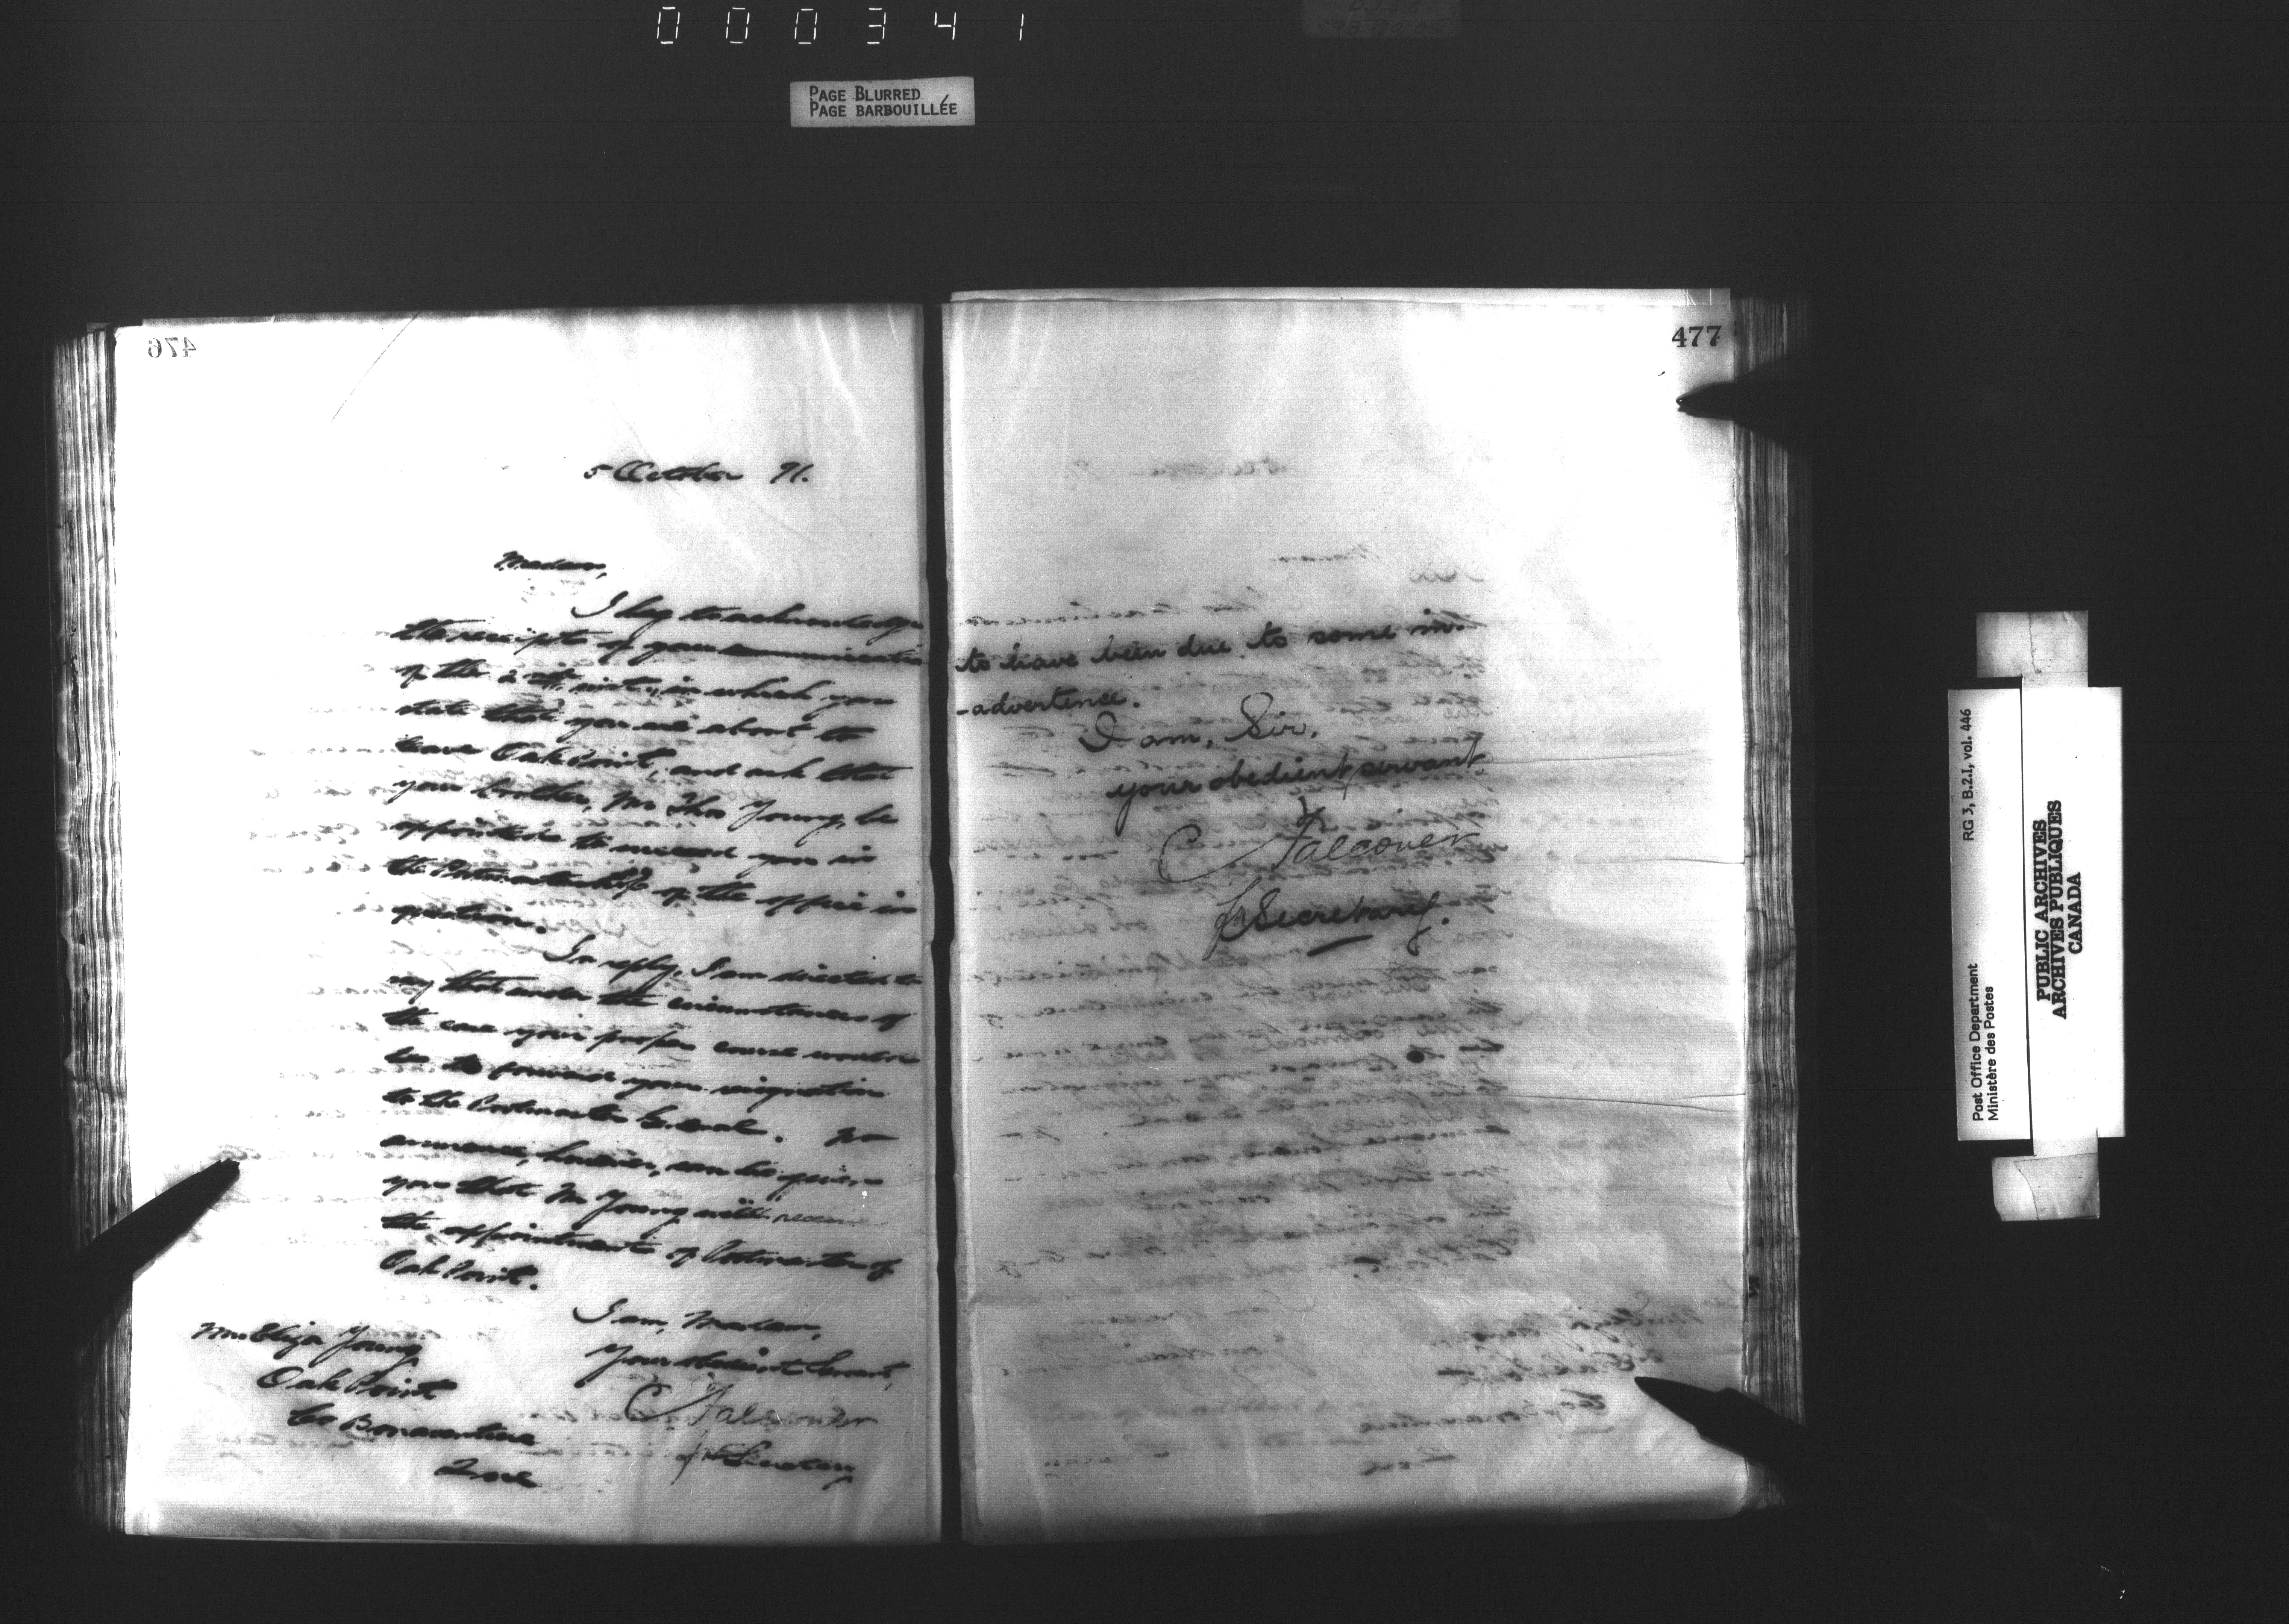 000341
PAGE BLURRED
PAGE BARBOUILLÉE
476
5 October 91.
Madam,
I beg to acknowledge
the receipt of your communication
of the 2nd inst., in which you
state that you are about to
leave Oak Point, and ask that
your brother, Mr Thos Young, be
appointed to succeed you in
the Postmastership of the office in
question.
In reply, I am directed to
say that under the circumstances of
the case your proper course would
be to forward your resignation
to the Postmaster General. No
assurance, however, can be given
you that Mr Young will receive
the appointment of Postmaster of
Oak Point.
I am, Madam,
Your obedient Servant,
C Falconer
for Secretary
Mrs Eliza Young
Oak Point
Co Bonaventure
Que
477
to have been due to some in-
-advertence.
I am, Sir,
your obedient servant,
C Falconer
for Secretary.
RG 3, B.2.I, vol. 446
Post Office Department
Ministère des Postes
PUBLIC ARCHIVES
ARCHIVES PUBLIQUES
CANADA